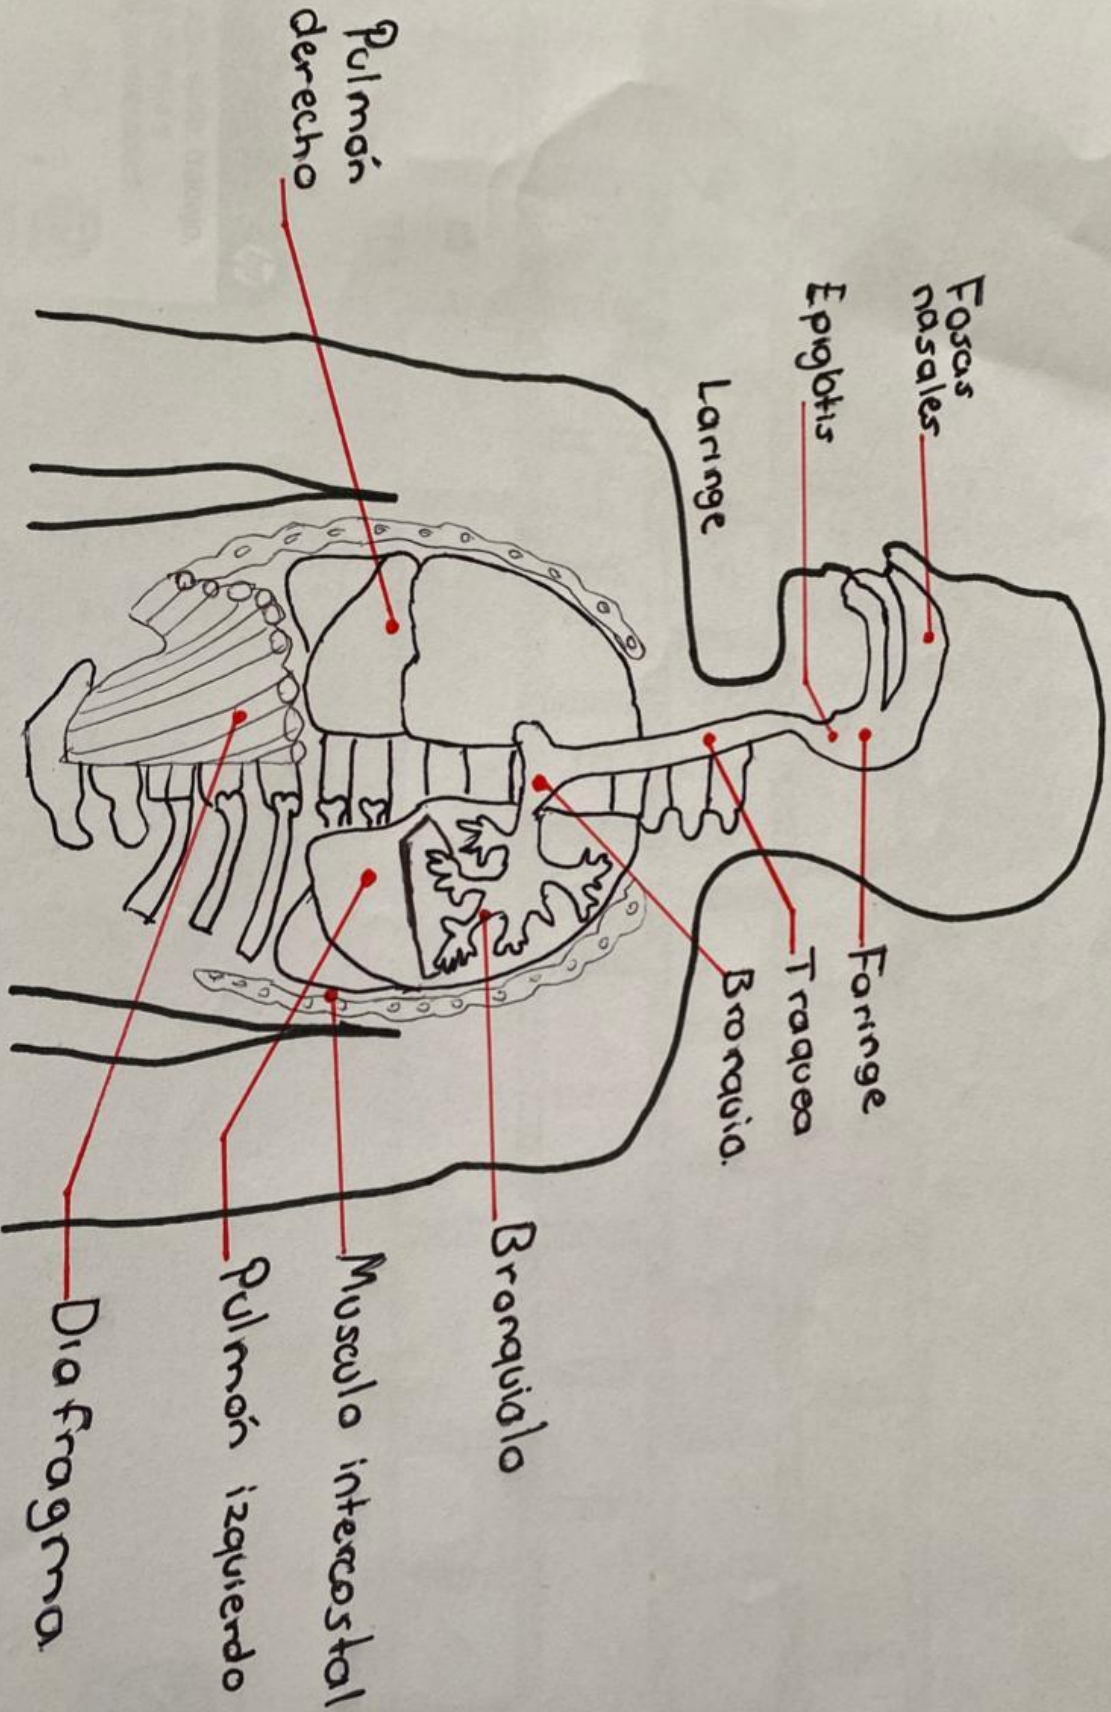 Fosas
nasales
Epiglotis
Laringe
Pulmón
derecho
Faringe
Traquea
Bronquio.
Bronquiolo
Musculo intercostal
Pulmón izquierdo
Diafragma